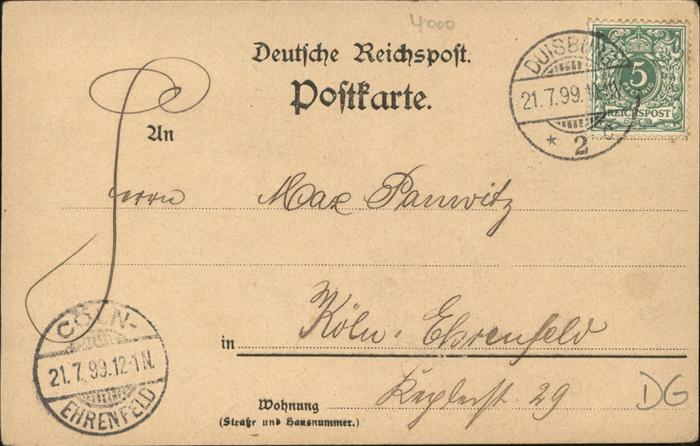 4000
Deutsche Reichspost.
Postkarte.
DUISBURG
21.7.99.
* 2 c
5
PFENNIG
REICHSPOST
An
Herrn Max Pannwitz
in Köln-Ehrenfeld
Wohnung Keplerst 29
(Straße und Hausnummer.)
DG
CÖLN-
21.7.99.12-1N.
EHRENFELD